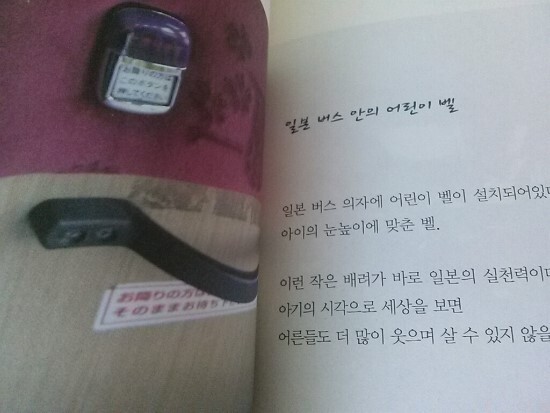 お降りの方は
このボタンを
押してくださ
お降りの方は
そのままお待ち
일본 버스 안의 어린이 벨
일본 버스 의자에 어린이 벨이 설치되어있
아이의 눈높이에 맞춘 벨.
이런 작은 배려가 바로 일본의 실천력이
아기의 시각으로 세상을 보면
어른들도 더 많이 웃으며 살 수 있지 않을